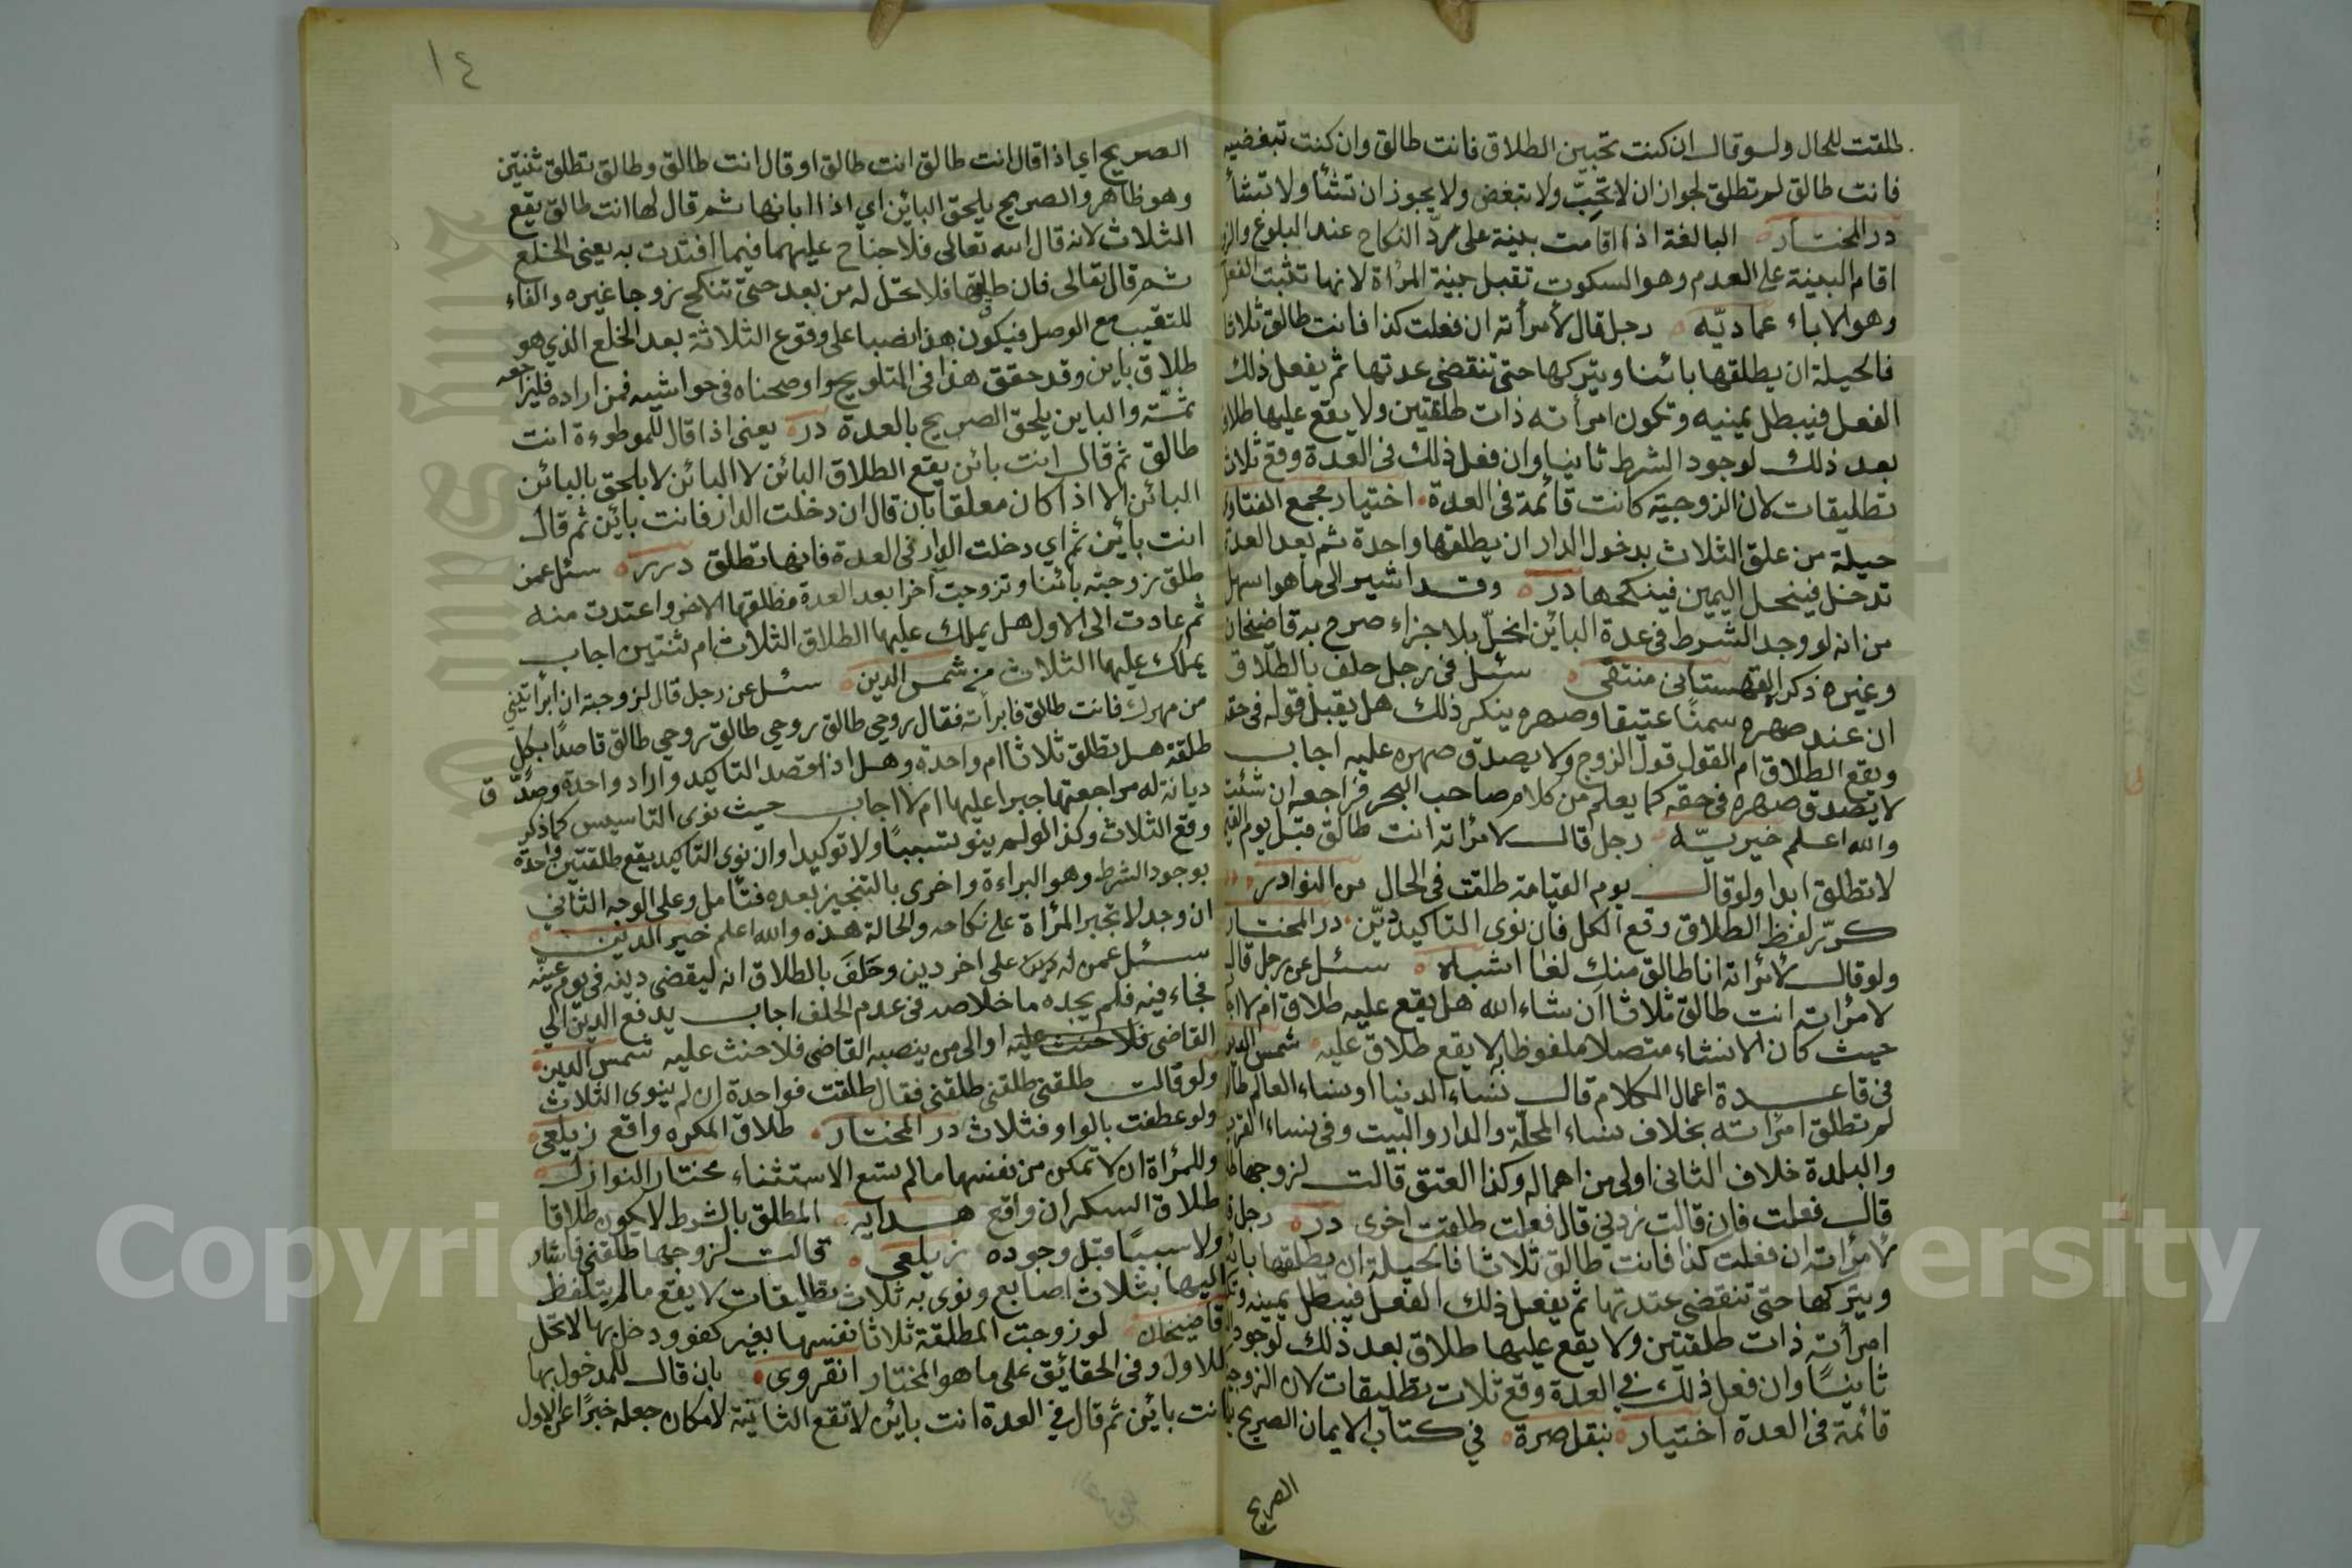 طلقت للحال ولو قال ان كنت تحبين الطلاق فانت طالق وان كنت تبغضيه
فانت طالق لم تطلق لجواز ان لا تحب ولا تبغض ولا يجوز ان تشأ ولا تشأ
در المختار البالغة اذا اقامت بينة على رد النكاح عند البلوغ
اقام البينة على العدم وهو السكوت تقبل بينة المرأة لانها تثبت الفعل
وهو الاباء عماديه رجل قال لأمرأته ان فعلت كذا فانت طالق ثلاثا
فالحيلة ان يطلقها بائنا ويتركها حتى تنقضى عدتها ثم يفعل ذلك
الفعل فيبطل يمنيه وتكون امرأته ذات طلقتين ولا يقع عليها طلاق
بعد ذلك لوجود الشرط ثانيا وان فعل ذلك في العدة وقع ثلاث
تطليقات لان الزوجية كانت قائمة فى العدة اختيار مجمع الفتاوى
حيلة من علق الثلاث بدخول الدار ان يطلقها واحدة ثم بعد العدة
تدخل فينحل اليمين فينكحها در وقد اشير الى ما هو اسهل
من انه لو وجد الشرط في عدة البائن انحل بلا جزاء صرح به قاضيخان
وغيره ذكره القهستانى منتقى سئل فى رجل حلف بالطلاق
ان عند صهره سمنا عتيقا وصهره ينكر ذلك هل يقبل قوله فى حقه
ويقع الطلاق ام القول قول الزوج ولا يصدق صهره عليه اجاب
لا يصدق صهره فى حقه كما يعلم من كلام صاحب البحر فراجعه ان شئت
والله اعلم خيريه رجل قال لامرأته انت طالق قبل يوم
لا تطلق ابدا ولو قال يوم القيامة طلقت فى الحال من النوادر
كرر لفظ الطلاق وقع الكل فان نوى التاكيد دين در المختار
ولو قال لأمرأته انا طالق منك لغا اشباه سئل عن رجل قال
لامرأته انت طالق ثلاثا ان شاء الله هل يقع عليه طلاق ام لا
حيث كان الانشاء متصلا ملفوظا لا يقع طلاق عليه شمس الدين
فى قاعدة اعمال الكلام قال نساء الدنيا او نساء العالم طالق
لم تطلق امرأته بخلاف نساء المحلة والدار والبيت وفى نساء
والبلدة خلاف الثانى اولى من اهماله وكذا العتق قالت لزوجها
قال فعلت فان قالت زدنى قال فعلت طلقت اخرى در رجل
لأمرأته ان فعلت كذا فانت طالق ثلاثا فالحيلة ان يطلقها
ويتركها حتى تنقضى عدتها ثم يفعل ذلك الفعل فيبطل يمينه
امرأته ذات طلقتين ولا يقع عليها طلاق بعد ذلك لوجود
ثانيا وان فعل ذلك في العدة وقع ثلاث تطليقات لان
قائمة فى العدة اختيار بنقل صرة في كتاب الايمان الصريح
الصريح
١٤
الصريح اي اذا قال انت طالق انت طالق او قال انت طالق وطالق تطلق ثنتين
وهو ظاهر والصريح يلحق البائن اي اذا ابانها ثم قال لها انت طالق يقع
الثلاث لانه قال الله تعالى فلا جناح عليهما فيما افتدت به يعنى الخلع
ثم قال تعالى فان طلقها فلا تحل له من بعد حتى تنكح زوجا غيره والفاء
للتعقيب مع الوصل فيكون هذا نصبا على وقوع الثلاثة بعد الخلع الذي هو
طلاق باين وقد حقق هذا فى التلويح واوضحناه فى حواشيه فمن اراده فليراجعه
ثمة والباين يلحق الصريح بالعدة در يعنى اذا قال للموطوءة انت
طالق ثم قال انت بائن يقع الطلاق البائن لا البائن لا يلحق بالبائن
البائن الا اذا كان معلقا بان قال ان دخلت الدار فانت بائن ثم قال
انت بائن ثم اي دخلت الدار فى العدة فانها تطلق درر سئل عمن
طلق زوجته بائنا وتزوجت آخر ا بعد العدة فطلقها الاخر واعتدت منه
ثم عادت الى الاول هل يملك عليها الطلاق الثلاث ام ثنتين اجاب
يملك عليها الثلاث شمس الدين سئل عن رجل قال لزوجته ان ابرأتيني
من مهرك فانت طالق فابرأته فقال روحي طالق روحي طالق روحي طالق قاصدا بكل
طلقة هل تطلق ثلاثا ام واحدة وهل اذا قصد التاكيد واراد واحدة وصدق
ديانة له مراجعتها جبرا عليها ام لا اجاب حيث نوى التاسيس كما ذكر
وقع الثلاث وكذا لو لم ينو تسببا ولا توكيدا وان نوى التاكيد يقع طلقتين واحدة
بوجود الشرط وهو البراءة واخرى بالتنجيز بعده فتأمل وعلى الوجه الثاني
ان وجد لا تجبر المرأة على نكاحه والحالة هذه والله اعلم خير الدين
سئل عمن له على اخر دين وحلف بالطلاق انه ليقضى دينه فى يوم عينه
فجاء فيه فلم يجده ما خلاصه فى عدم الحلف اجاب يدفع الدين الى
القاضى فلا حنث عليه او الى من ينصبه القاضى فلا حنث عليه شمس الدين
ولو قالت طلقنى طلقنى طلقنى فقال طلقت فواحدة ان لم ينوى الثلاث
ولو عطفت بالواو فثلاث در المختار طلاق المكره واقع زيلعى
وللمرأة ان لا تمكن من نفسها ما لم تسمع الاستثناء مختار النوازل
طلاق السكران واقع هدايه المطلق بالشرط لا يكون طلاقا
ولا سببا قبل وجوده زيلعى قالت لزوجها طلقنى فاشار
اليها بثلاث اصابع ونوى به ثلاث تطليقات لا يقع ما لم يتلفظ
قاضيخان لو زوجت المطلقة ثلاثا نفسها بغير كفو ودخل بها لا تحل
للاول وفى الحقائق على ما هو المختار انقروى بان قال للمدخول بها
انت بائن ثم قال في العدة انت بائن لا تقع الثانية لامكان جعله خبرا عن الاول